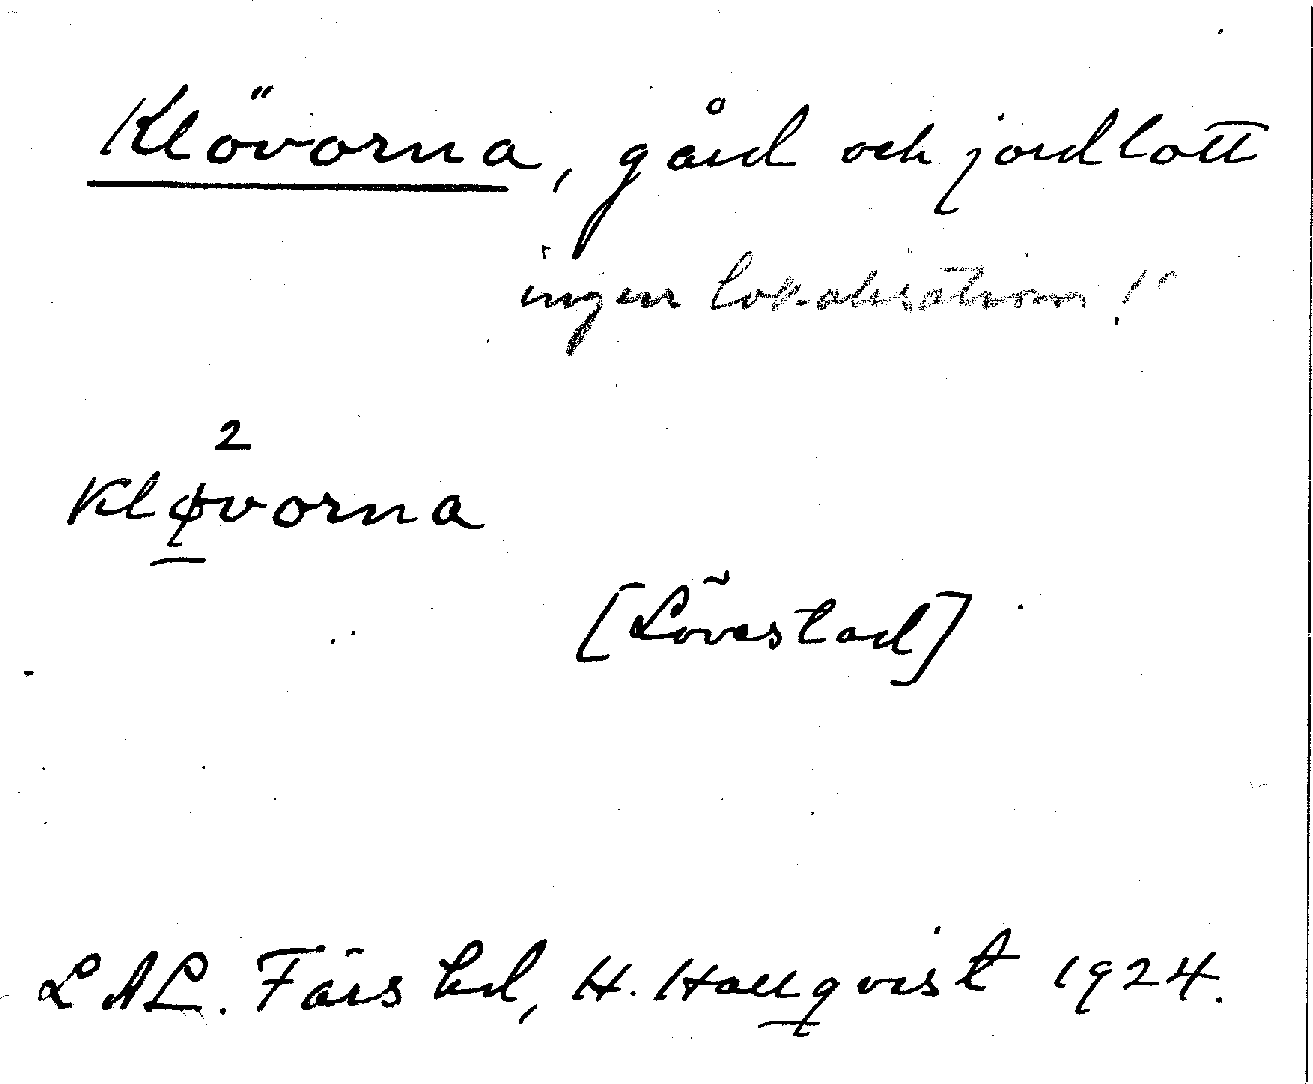 Klövorna, gård och jordlott
ingen lokalisation!
2
Kløvorna
[Lövestad]
LAL. Färs hd, H. Hallqvist 1924.